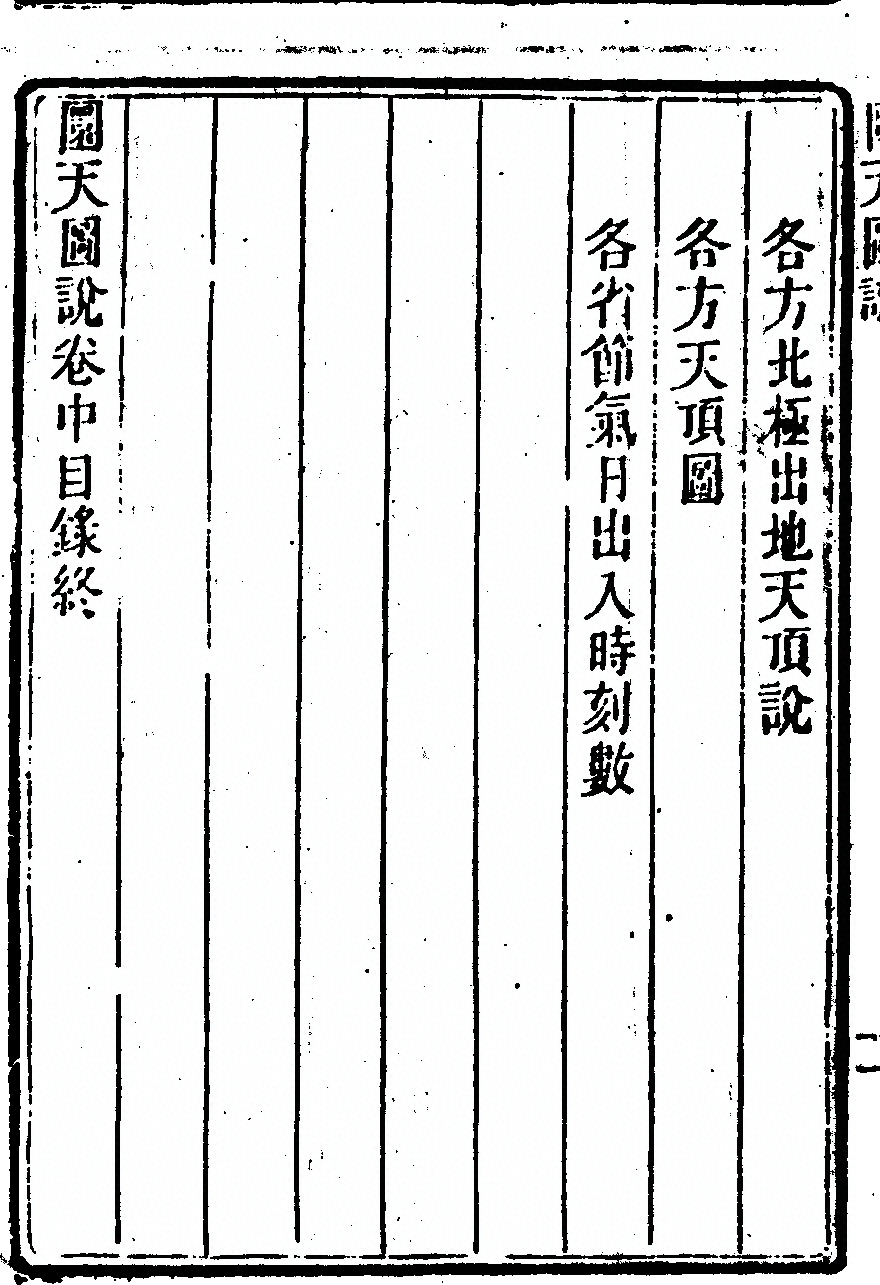 各方北極出地天頂說
各方天頂圖
各省節氣日出入時刻數
圜天圖說卷中目錄終